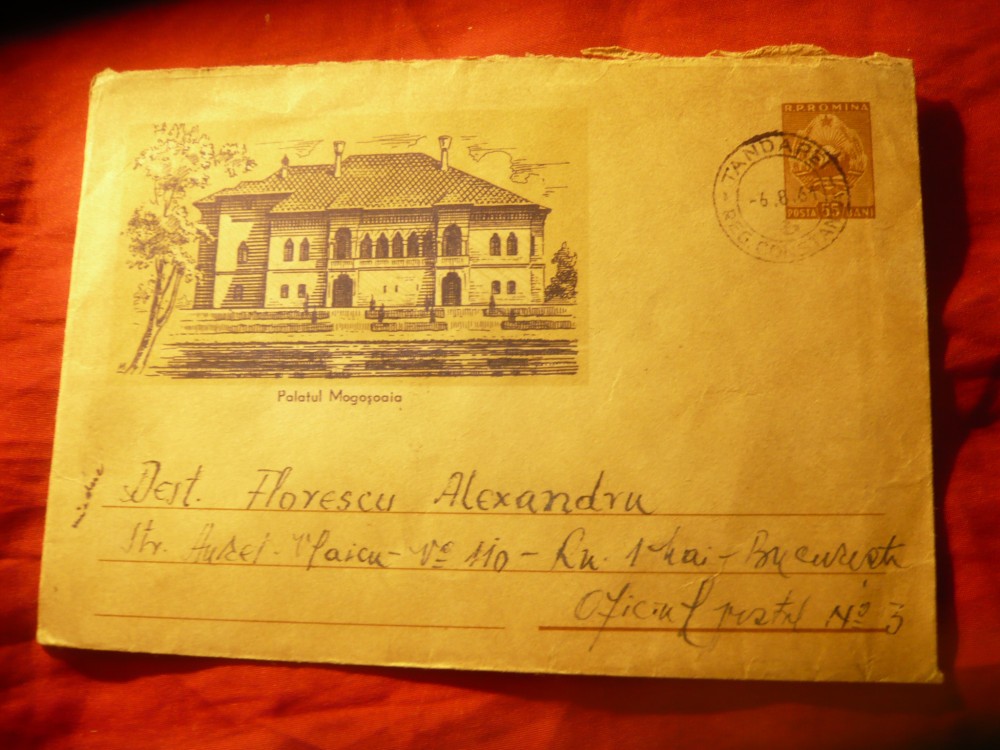 R.P.ROMINA
POSTA 55 BANI
TANDAREI
-6.8.61
REG. CONSTANTA
Palatul Mogoșoaia
Dest. Florescu Alexandru
Str. Aurel Vlaicu - No 110 - Rn. 1 Mai - București
Oficiul poștal No 3